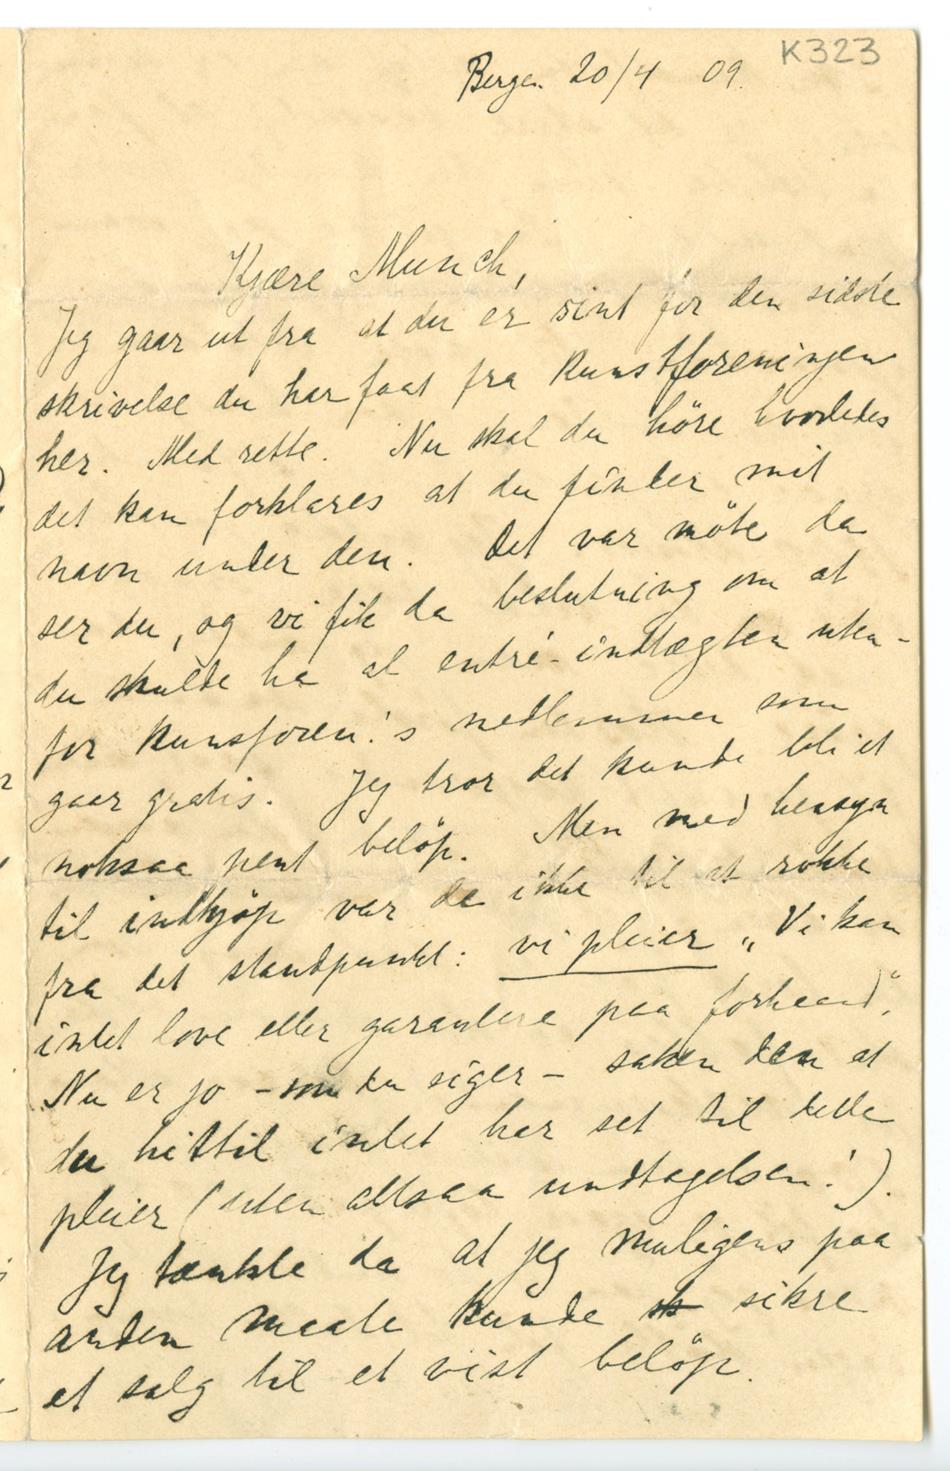 K323
Bergen 20/4 09.
Kjære Munch,
Jeg gaar ut fra at du er sint for den sidste
skrivelse du har faat fra Kunstforeningen
her. Med rette. Nu skal du höre hvorledes
det kan forklares at du finder mit
navn under den. Det var möte da
ser du, og vi fik da beslutning om at
du skulde ha al entré-indtægten uten-
for Kunsforen!s medlemmer som
gaar gratis. Jeg tror det kunde bli et
noksaa pent beløp. Men med hensyn
til indkjøp var de ikke til at rokke
fra det standpunkt: vi pleier „Vi kan
intet love eller garantere paa forhaand“.
Nu er jo – som du siger – saken den at
du hittil intet har set til dette
pleier (uten altsaa undtagelsen!).
Jeg tænkte da at jeg muligens paa
anden maate kunde sikre
et salg til et vist beløp.